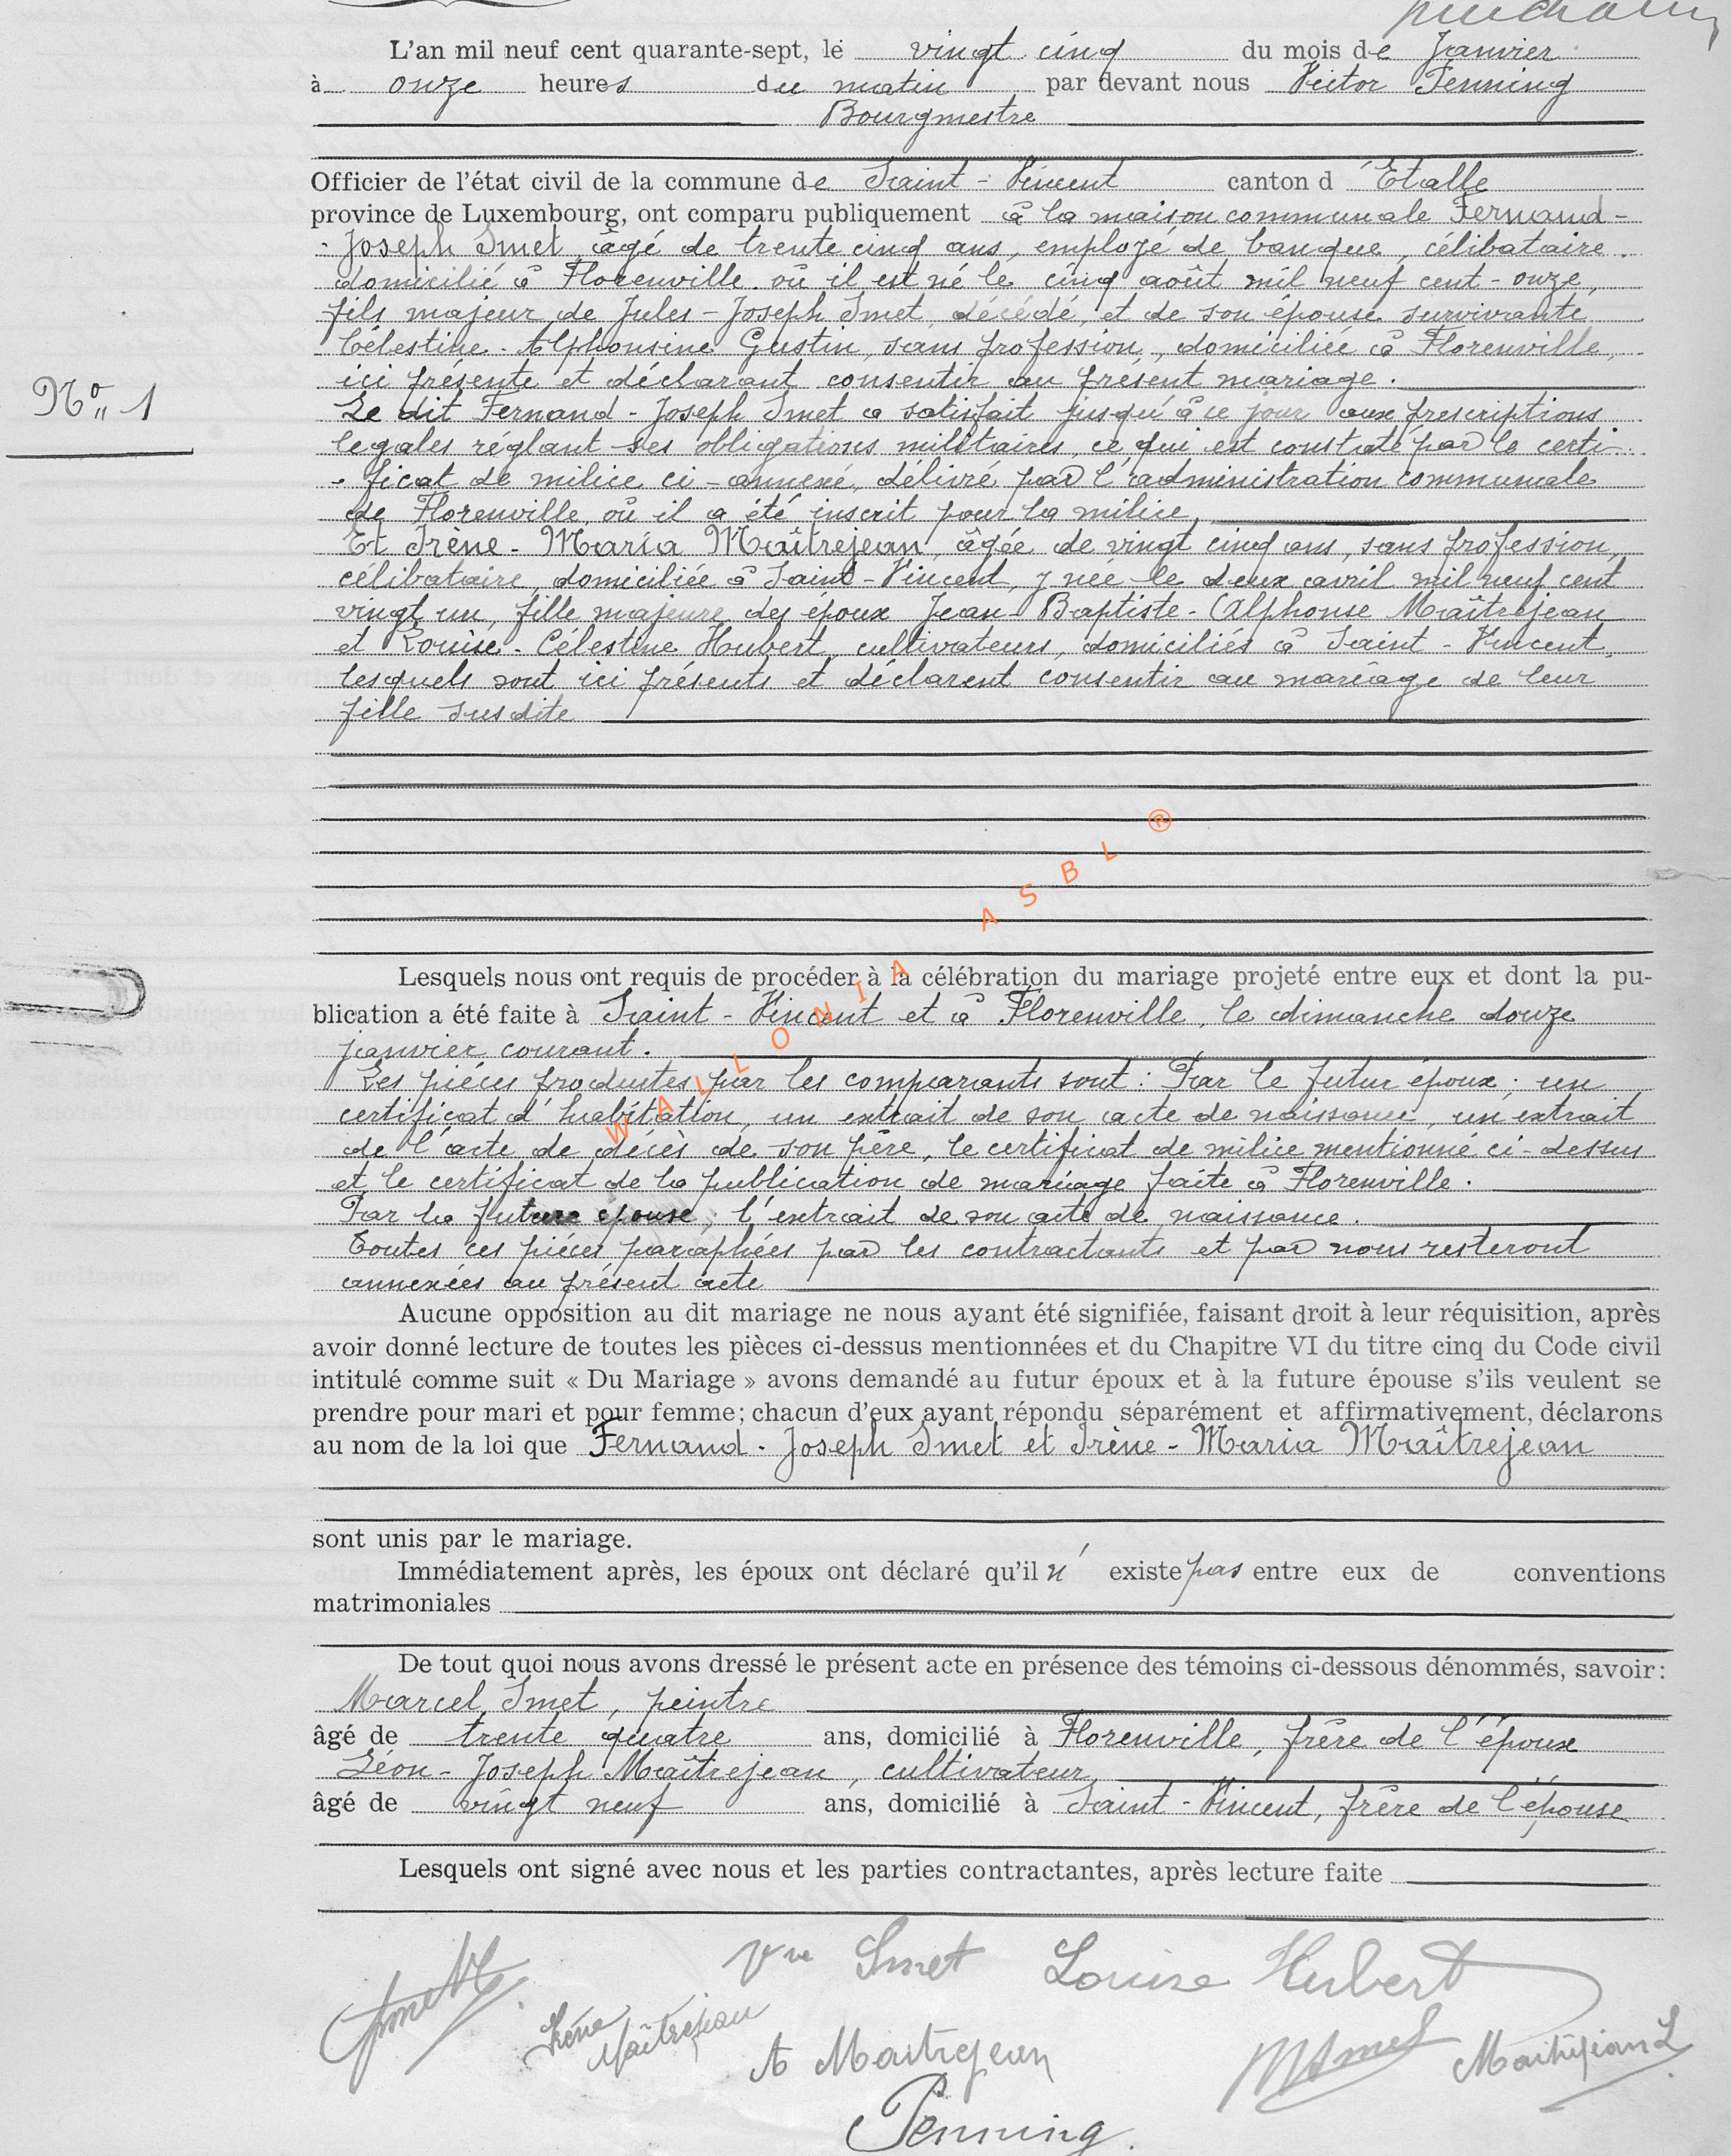 L'an mil neuf cent quarante-sept, le vingt cinq du mois de Janvier
à onze heures du matin par devant nous Victor Penning
Bourgmestre
Officier de l'état civil de la commune de Saint-Vincent canton d'Etalle
province de Luxembourg, ont comparu publiquement à la maison communale Fernand-
-Joseph Smet, âgé de trente cinq ans, employé de banque, célibataire,
domicilié à Florenville où il est né le cinq août mil neuf cent-onze,
fils majeur de Jules-Joseph Smet, décédé, et de son épouse survivante
Célestine-Alphonsine Gustin, sans profession, domiciliée à Florenville,
ici présente et déclarant consentir au présent mariage.
No 1
Le dit Fernand-Joseph Smet a satisfait jusqu'à ce jour aux prescriptions
legales réglant ses obligations militaires, ce qui est constaté par le certi-
-ficat de milice ci-annexé, délivré par l'administration communale
de Florenville où il a été inscrit pour la milice,
Et Irène-Maria Maîtrejean, âgée de vingt cinq ans, sans profession,
célibataire, domiciliée à Saint-Vincent, y née le deux avril mil neuf cent
vingt un, fille majeure des époux Jean-Baptiste-Alphonse Maîtrejean
et Louise-Célestine Hubert, cultivateurs, domiciliés à Saint-Vincent,
lesquels sont ici présents et déclarent consentir au mariage de leur
fille susdite
Lesquels nous ont requis de procéder à la célébration du mariage projeté entre eux et dont la pu-
blication a été faite à Saint-Vincent et à Florenville, le dimanche douze
janvier courant.
Les pièces produites par les comparants sont: Par le futur époux: un
certificat d'habitation, un extrait de son acte de naissance, un extrait
de l'acte de décès de son père, le certificat de milice mentionné ci-dessus
et le certificat de la publication de mariage faite à Florenville.
Par la future épouse; l'extrait de son acte de naissance.
Toutes ces pièces paraphées par les contractants et par nous resteront
annexées au présent acte
Aucune opposition au dit mariage ne nous ayant été signifiée, faisant droit à leur réquisition, après
avoir donné lecture de toutes les pièces ci-dessus mentionnées et du Chapitre VI du titre cinq du Code civil
intitulé comme suit « Du Mariage » avons demandé au futur époux et à la future épouse s'ils veulent se
prendre pour mari et pour femme; chacun d'eux ayant répondu séparément et affirmativement, déclarons
au nom de la loi que Fernand-Joseph Smet et Irène-Maria Maîtrejean
sont unis par le mariage.
Immédiatement après, les époux ont déclaré qu'il n'existe pas entre eux de conventions
matrimoniales
De tout quoi nous avons dressé le présent acte en présence des témoins ci-dessous dénommés, savoir:
Marcel Smet, peintre
âgé de trente quatre ans, domicilié à Florenville, frère de l'époux
Léon-Joseph Maîtrejean, cultivateur
âgé de vingt neuf ans, domicilié à Saint-Vincent, frère de l'épouse
Lesquels ont signé avec nous et les parties contractantes, après lecture faite
Vve Smet Louise Hubert
Irène Maîtrejean
A Maitrejean
MSmet Maitrejean L
Penning.
WALLONIA ASBL ®